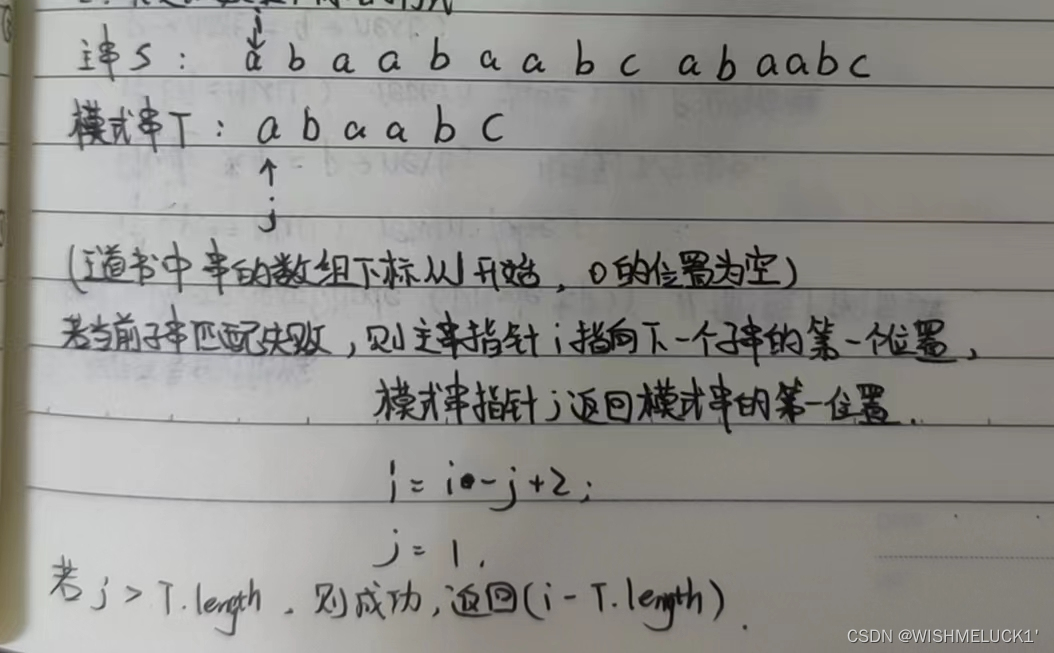 i
↓
主串S: a b a a b a a b c a b a a b c
模式串T: a b a a b c
↑
j
(王道书中串的数组下标从1开始,0的位置为空)
若当前子串匹配失败,则主串指针i指向下一个子串的第一个位置,
模式串指针j返回模式串的第一位置.
i = i - j + 2;
j = 1.
若 j > T.length. 则成功,返回(i - T.length).
CSDN @WISHMELUCK1'